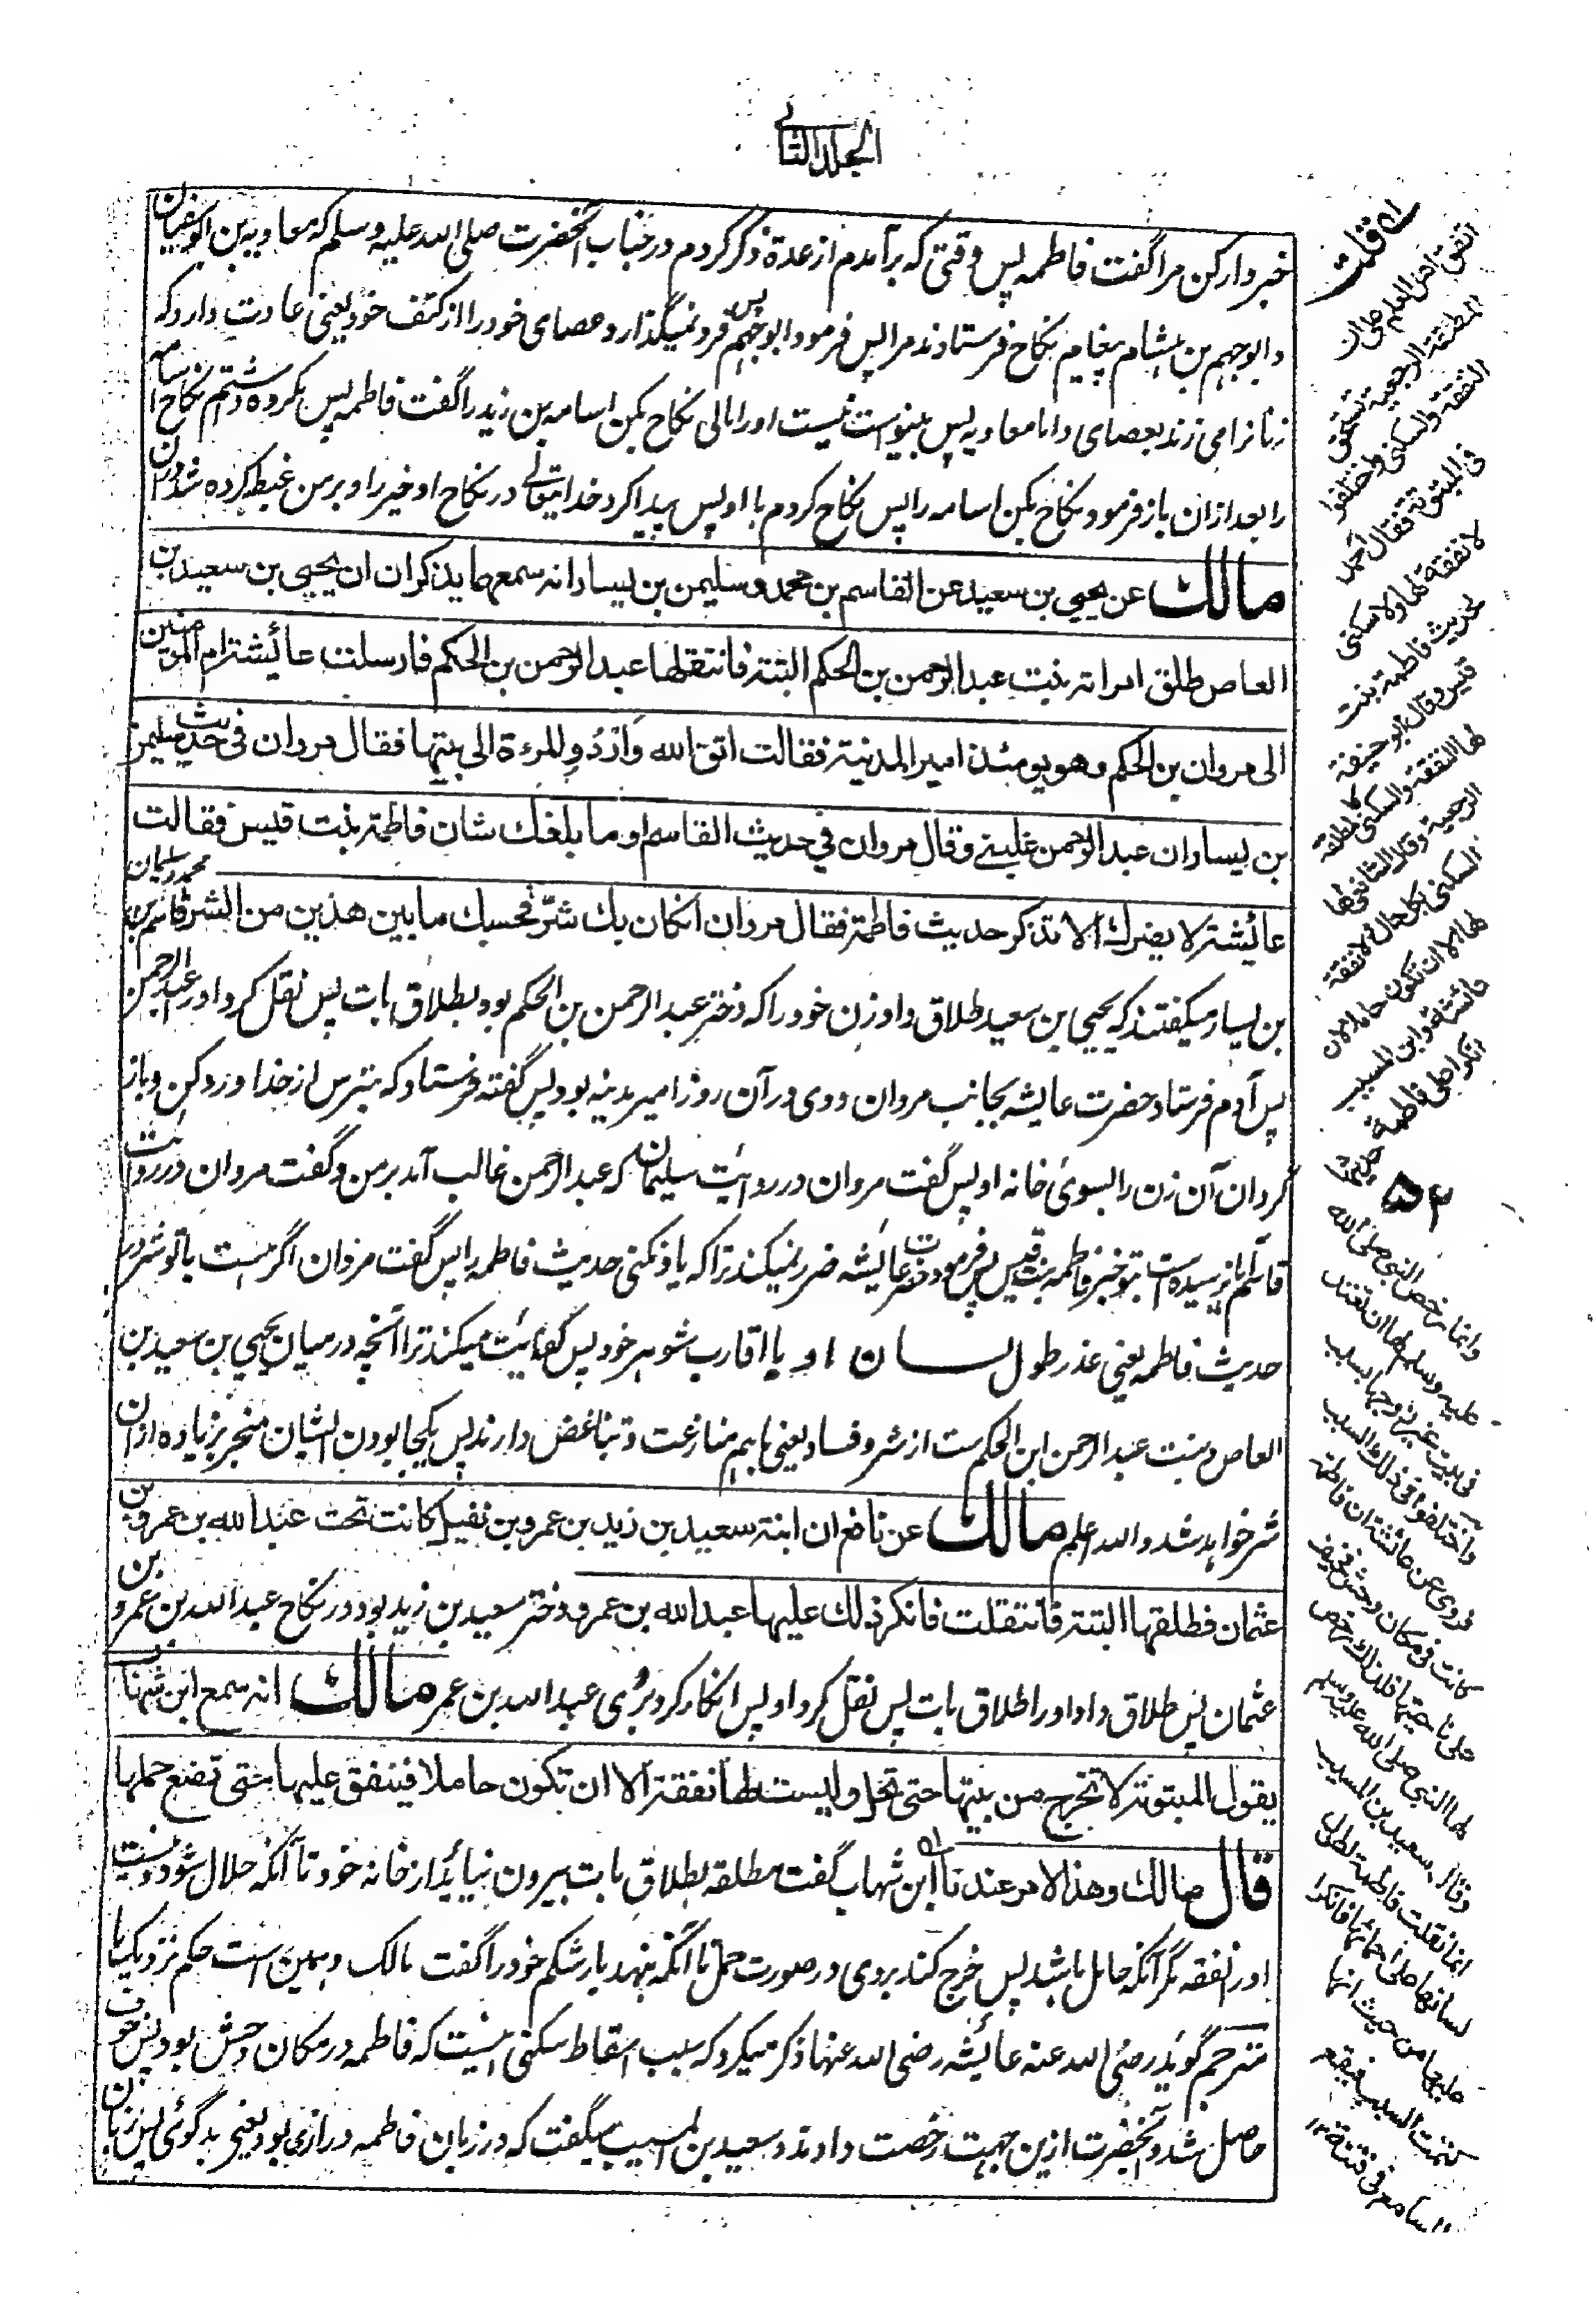 الجلد الثانی
خبردار کن مرا گفت فاطمه پس وقتی که برآمدم از عدة ذکر کردم در جناب آنحضرت صلی الله علیه وسلم که معاویه بن ابوسفیان
و ابوجهم بن هشام پیغام نکاح فرستادند مرا پس فرمود ابوجهم پس فرو نمیگذارد عصای خود را از کتف خود یعنی عادت دارد که
زنانرا می زند بعصای و اما معاویه پس بینواست نیست او را مالی نکاح بکن اسامه بن زید را گفت فاطمه پس مکروه داشتم نکاح اسامه
را بعد ازان باز فرمود نکاح بکن اسامه را پس نکاح کردم با او پس پیدا کرد خدایتعالے در نکاح او خیر را و بر من غبطه کرده شد دران
مالك عن يحيى بن سعيد عن القاسم بن محمد وسليمن بن يسار انه سمعهما يذكران ان يحيى بن سعيد بن
العاص طلق امراته بنت عبد الرحمن بن الحكم البتة فانتقلها عبد الرحمن بن الحكم فارسلت عائشة ام المومنين
الى مروان بن الحكم وهو يومئذ امير المدينة فقالت اتق الله وَاردُدِ المرءة الى بيتها فقال مروان فى حديث سليمن
بن يسار ان عبد الرحمن غلبنے وقال مروان في حديث القاسم او ما بلغك شان فاطمة بنت قيس فقالت
عائشة لا يضرك الا تذكر حديث فاطمة فقال مروان ان كان بك شرّ فحسبك ما بين هذين من الشر قاسم بن محمد وسلیمان
بن یسار میگفتند که یحیی بن سعید طلاق داد زن خود را که دختر عبد الرحمن بن الحکم بود بطلاق بات پس نقل کرد او را عبد الرحمن
پس آدم فرستاد حضرت عایشه بجانب مروان و وی در آن روز امیر مدینه بود پس گفته فرستاد که بترس از خدا و رد کن و باز
گردان آن زن را بسوی خانه او پس گفت مروان در روایت سلیمان که عبد الرحمن غالب آمد بر من و گفت مروان در روایت
قاسم آیا نرسیده است بتو خبر فاطمه بنت قیس پس فرمود حضرت عائشه ضرر نمیکند ترا که یاد نکنی حدیث فاطمه را پس گفت مروان اگر هست با تو شر در
حدیث فاطمه یعنی عذر طول لسان او با اقارب شوهر خود پس کفایت میکند ترا آنچه در میان یحیی بن سعید بن
العاص و بنت عبد الرحمن ابن الحکم ست از شر و فساد یعنی باهم منازعت و تباغض دارند پس یکجا بودن ایشان منجر بزیاده ازان
شر خواهد شد و الله اعلم مالك عن نافع ان ابنة سعيد بن زيد بن عمرو بن نفيل كانت تحت عبد الله بن عمرو بن
عثمان فطلقها البتة فانتقلت فانكر ذلك عليها عبد الله بن عمر دختر سعید بن زید بود در نکاح عبد الله بن عمرو بن
عثمان پس طلاق داد او را طلاق بات پس نقل کرد او پس انکار کرد بر وی عبد الله بن عمر مالك انه سمع ابن شهاب
يقول المبتوتة لا تخرج من بيتها حتى تحل وليست لها نفقة الا ان تكون حاملا فينفق عليها حتى تضع حملها
قال مالك وهذا الامر عندنا ابن شهاب گفت مطلقه بطلاق بات بیرون نیاید از خانه خود تا آنکه حلال شود و نیست
او را نفقه مگر آنکه حامل باشد پس خرج کند بروی در صورت حمل تا آنکه بنهد بار شکم خود را گفت مالک و همین است حکم نزدیک ما
مترجم گوید رضی الله عنه عائشه رضی الله عنها ذکر میکرد که سبب اسقاط سکنی اینست که فاطمه در مکان وحش بود پس خوف
حاصل شد و آنحضرت ازین جهت رخصت دادند و سعید بن المسیب میگفت که در زبان فاطمه درازی بود یعنی بدگوئی پس زبان
قلت
اتفق اهل العلم على ان
المطلقة الرجعية تستحق
النفقة والسكنى واختلفوا
فى المبتوتة فقال احمد
لا نفقة لها ولا سكنى
لحديث فاطمة بنت
قيس وقال ابو حنيفة
لها النفقة والسكنى كالمطلقة
الرجعية وقال الشافعى لها
السكنى بكل حال ولا نفقة
لها الا ان تكون حاملا لان
عائشة وابن المسيب
انكرا على فاطمة
۵۲
وانما رخص النبى صلى الله
عليه وسلم لها ان تعتد
فى بيت غير زوجها بسبب
واختلفوا فى ذلك السبب
فروى عن عائشة ان فاطمة
كانت فى مكان وحش فخيف
على ناحيتها فلذلك رخص
لها النبى صلى الله عليه وسلم
وقال سعيد بن المسيب
انما نقلت فاطمة لطول
لسانها على احمائها فانكرا
عليها من حيث انها
كتمت السبب فيقع
السامع فى فتنة ۱۲